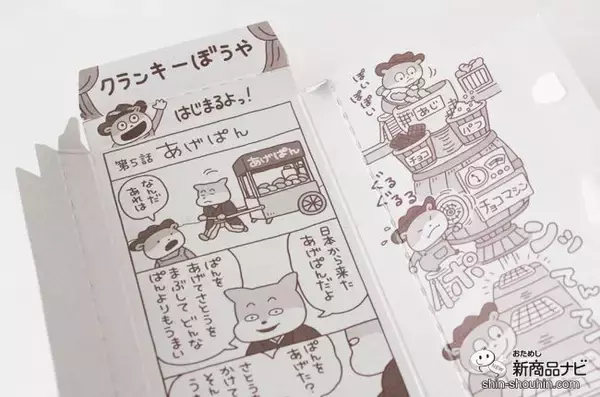 クランキーぼうや
はじまるよっ!
第5話 あげぱん
あげぱん
なんだ
あれは
日本から来た
あげぱんだよ
ぱんを
あげてさとうを
まぶしてどんな
ぱんよりもうまい
ぱんを
あげた?
さとうを
かけて
そん
ぽいぽい
ぽいぽい
あじ
チョコ
パフ
ぐるぐる
ぐるる
チョコマシン
ポンッ
おためし
新商品ナビ
shin-shouhin.com